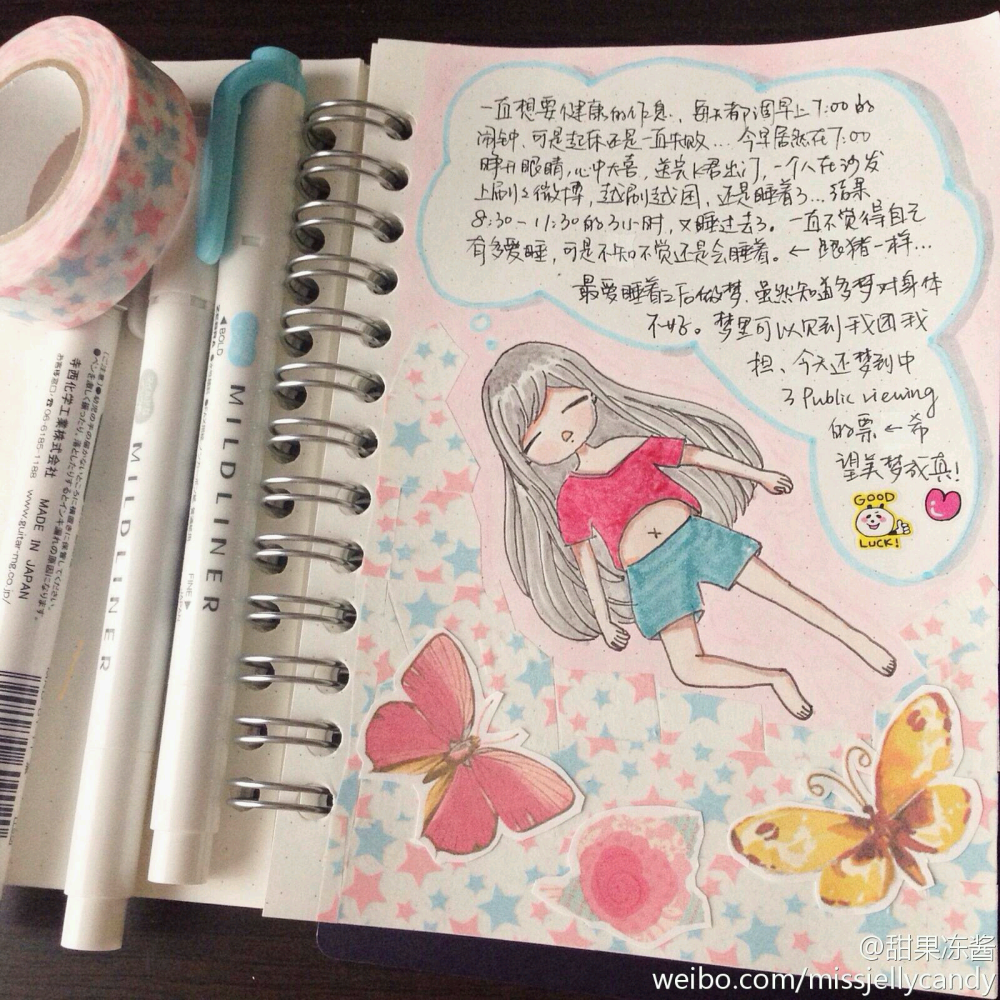 一直想要健康的作息，每天都调早上7:00的
闹钟，可是起床还是一直失败... 今早居然在7:00
睁开眼睛，心中大喜，送完K君出门，一个人在沙发
上刷了微博，越刷越困，还是睡着了...结果
8:30-11:30的3小时，又睡过去了。一直不觉得自己
有多爱睡，可是不知不觉还是会睡着。←跟猪一样...
最爱睡着之后做梦，虽然知道多梦对身体
不好。梦里可以见到我团我
担、今天还梦到中
了Public viewing
的票←希
望美梦成真！
GOOD
LUCK!
BOLD
MILDLINER
FINE
MILDLINER
寺西化学工業株式会社 MADE IN JAPAN
お客様窓口:☎06-6185-1188 www.guitar-mg.co.jp/
@甜果冻酱
weibo.com/missjellycandy